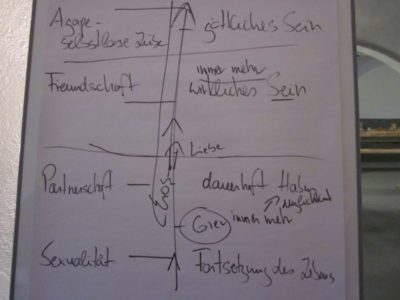 Agape-
selbstlose Liebe
göttliches Sein
Freundschaft
immer mehr
wirkliches Sein
Liebe
Partnerschaft
Eros
dauerhaft Haben
Gier
immer mehr
Sexualität
Fortsetzung des Lebens